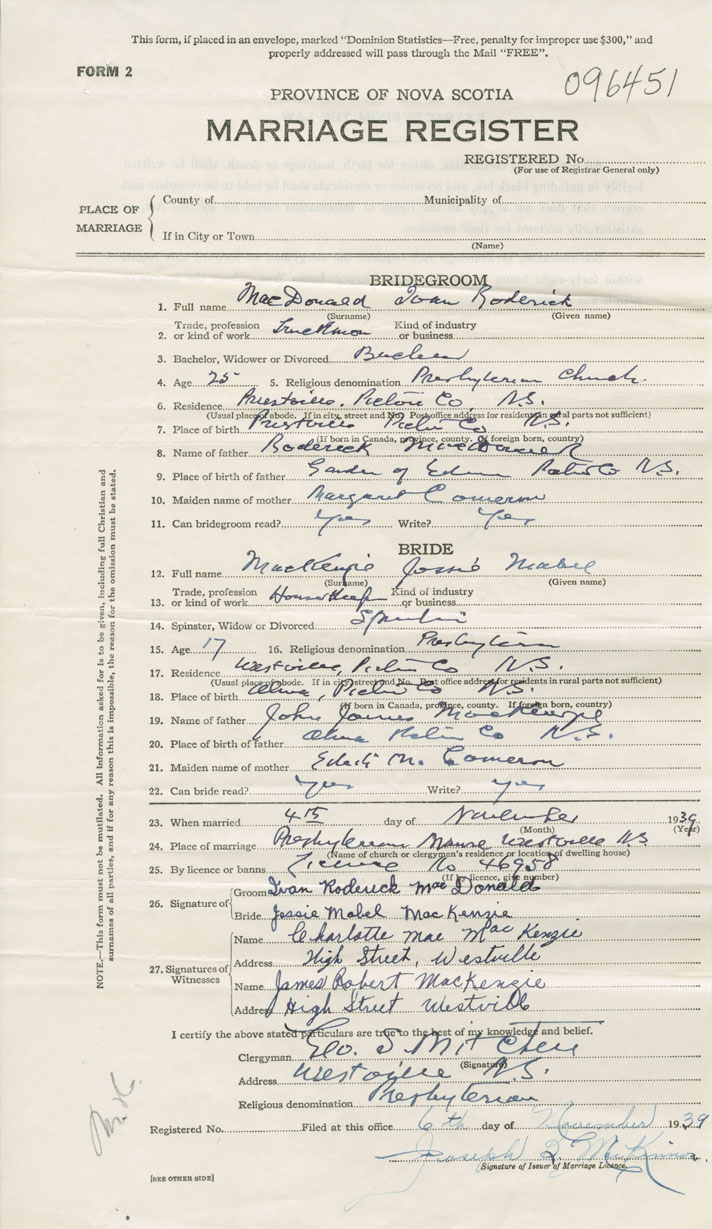 This form, if placed in an envelope, marked "Dominion Statistics—Free, penalty for improper use $300," and
properly addressed will pass through the Mail "FREE".
FORM 2
096451
PROVINCE OF NOVA SCOTIA
MARRIAGE REGISTER
REGISTERED No.
(For use of Registrar General only)
PLACE OF MARRIAGE
County of Municipality of
If in City or Town
(Name)
BRIDEGROOM
1. Full name MacDonald Ivan Roderick
(Surname) (Given name)
2. Trade, profession or kind of work Truckman Kind of industry or business
3. Bachelor, Widower or Divorced
4. Age 25 5. Religious denomination Presbyterian Church
6. Residence Priestville. Pictou Co. N.S.
(Usual place of abode. If in city, street and No. Post office address for residents in rural parts not sufficient)
7. Place of birth Priestville Pictou Co N.S.
(If born in Canada, province, county. If foreign born, country)
8. Name of father Roderick MacDonald
9. Place of birth of father Garden of Eden Pictou Co N.S.
10. Maiden name of mother Margaret Cameron
11. Can bridegroom read? Yes Write? Yes
BRIDE
12. Full name MacKenzie Jessie Mabel
(Surname) (Given name)
13. Trade, profession or kind of work HouseKeeper Kind of industry or business
14. Spinster, Widow or Divorced Spinster
15. Age 17 16. Religious denomination Presbyterian
17. Residence Westville, Pictou Co N.S.
(Usual place of abode. If in city street and No. Post office address for residents in rural parts not sufficient)
18. Place of birth Alma, Pictou Co N.S.
(If born in Canada, province, county. If foreign born, country)
19. Name of father John James MacKenzie
20. Place of birth of father Alma Pictou Co N.S.
21. Maiden name of mother M. Cameron
22. Can bride read? Yes Write? Yes
23. When married 4th day of November 1939
(Month) (Year)
24. Place of marriage Presbyterian Manse Westville N.S.
(Name of church or clergyman's residence or location of dwelling house)
25. By licence or banns Licence No 46958
(If by licence, give number)
26. Signature of
Groom Ivan Roderick MacDonald
Bride Jessie Mabel MacKenzie
27. Signatures of Witnesses
Name Charlotte Mae MacKenzie
Address High Street, Westville
Name James Robert MacKenzie
Address High Street Westville
I certify the above stated particulars are true to the best of my knowledge and belief.
Clergyman Geo. S Mitchell
(Signature)
Address Westville N.S.
Religious denomination Presbyterian
Registered No. Filed at this office 6th day of November 1939
Joseph McKinnon
Signature of Issuer of Marriage Licence.
[SEE OTHER SIDE]
NOTE.—This form must not be mutilated. All information asked for is to be given, including full Christian and
surnames of all parties, and if for any reason this is impossible, the reason for the omission must be stated.